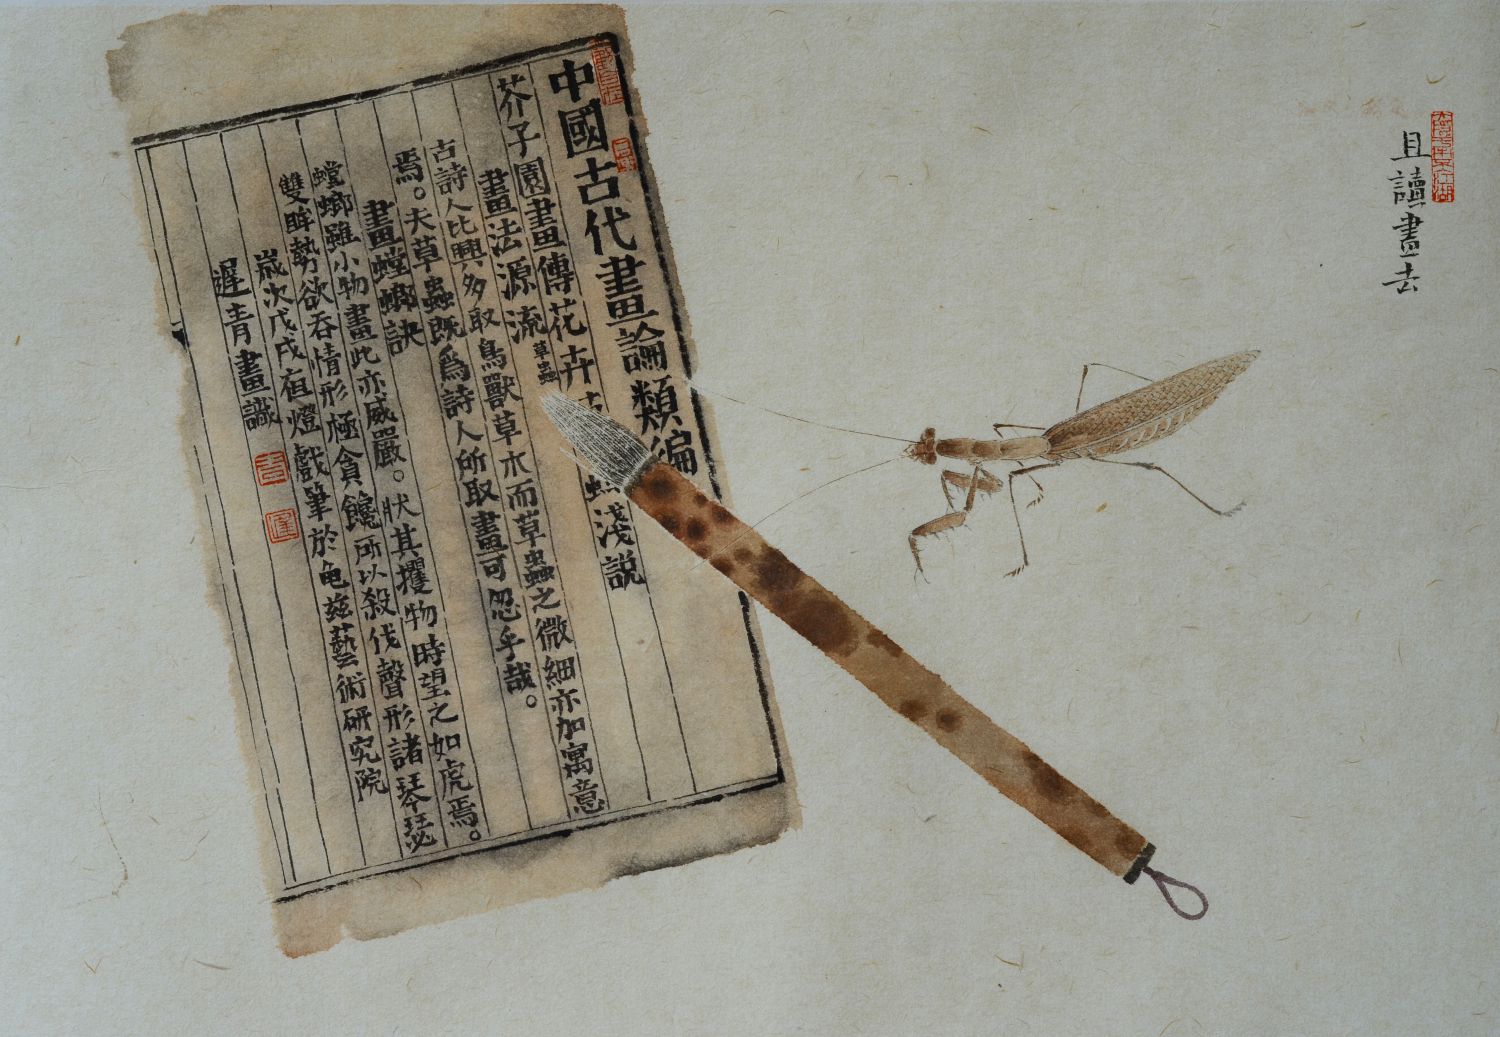 且讀畫去
中國古代畫論類編
芥子園畫傳花卉草蟲淺說
畫法源流草蟲
古詩人比興多取鳥獸草木而草蟲之微細亦加寓意
焉。夫草蟲既為詩人所取畫可忽乎哉。
畫螳螂訣
螳螂雖小物畫此亦威嚴。狀其攫物時望之如虎焉。
雙眸勢欲吞情形極貪饞所以殺伐聲形諸琴瑟
歲次戊戌宿燈戲筆於龟兹藝術研究院
遲青畫識